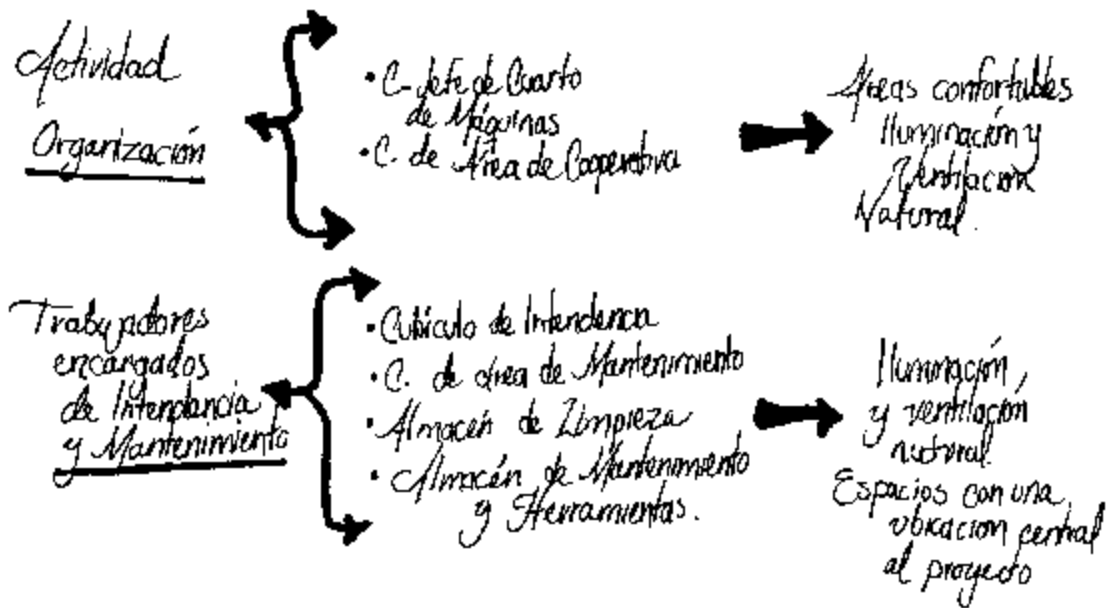 Actividad
Organización
• C. Jefe de Cuarto
de Máquinas
• C. de Área de Cooperativa
Areas confortables
Iluminación y
Ventilación
Natural.
Trabajadores
encargados
de Intendencia
y Mantenimiento
• Cubículo de Intendencia
• C. de área de Mantenimiento
• Almacén de Limpieza
• Almacén de Mantenimiento
y Herramientas.
Iluminación,
y ventilación
natural.
Espacios con una
ubicación central
al proyecto